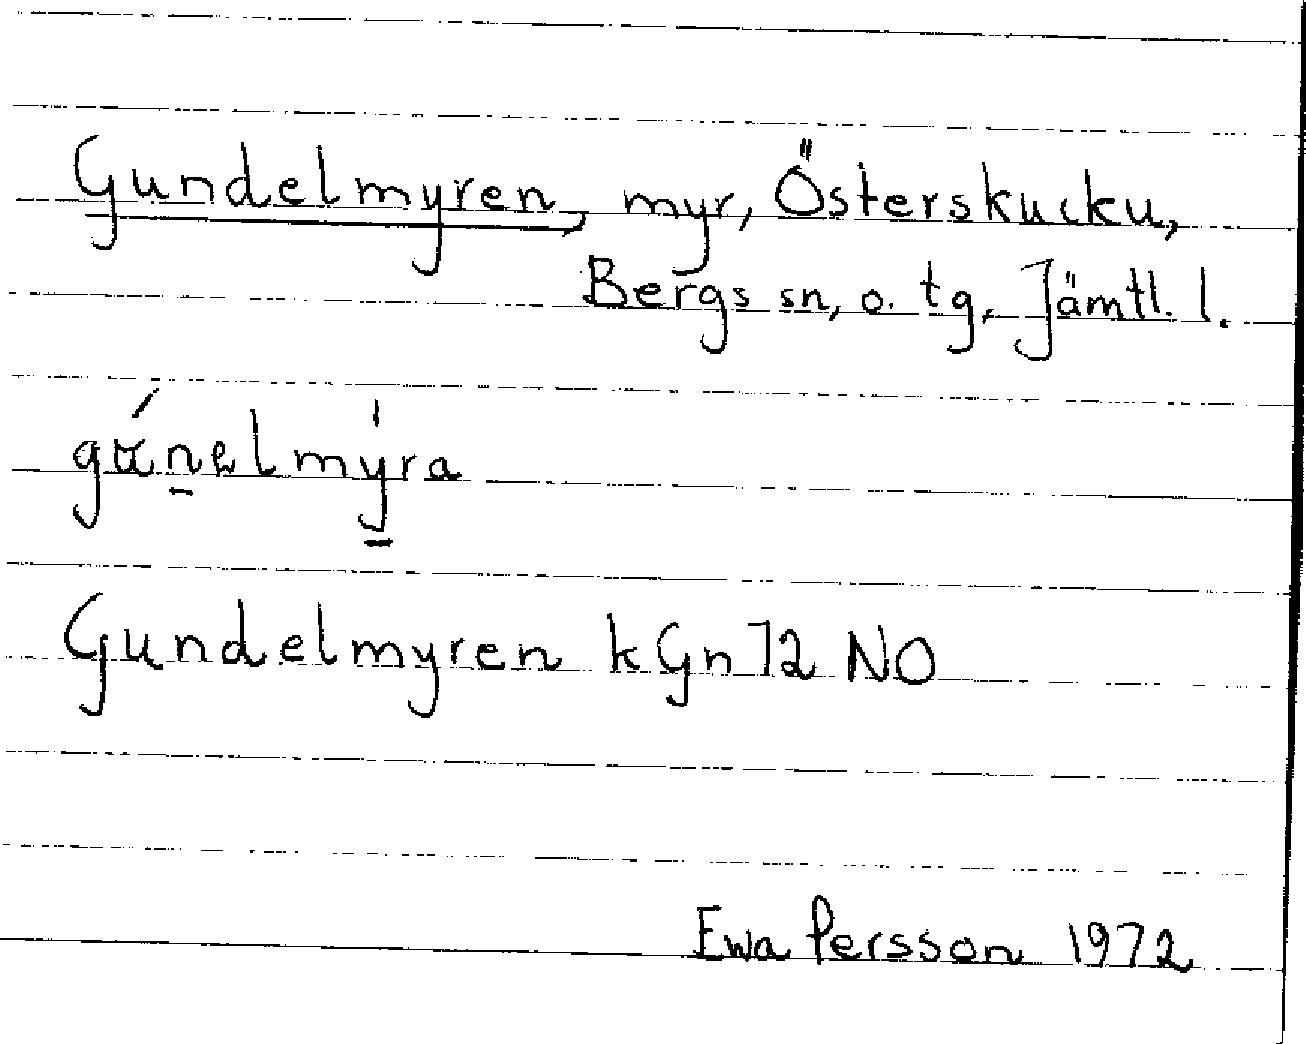 Gundelmyren, myr, Österskucku,
Bergs sn, o. tg, Jämtl. l.
Gundelmyren kGn 72 NO
Ewa Persson 1972